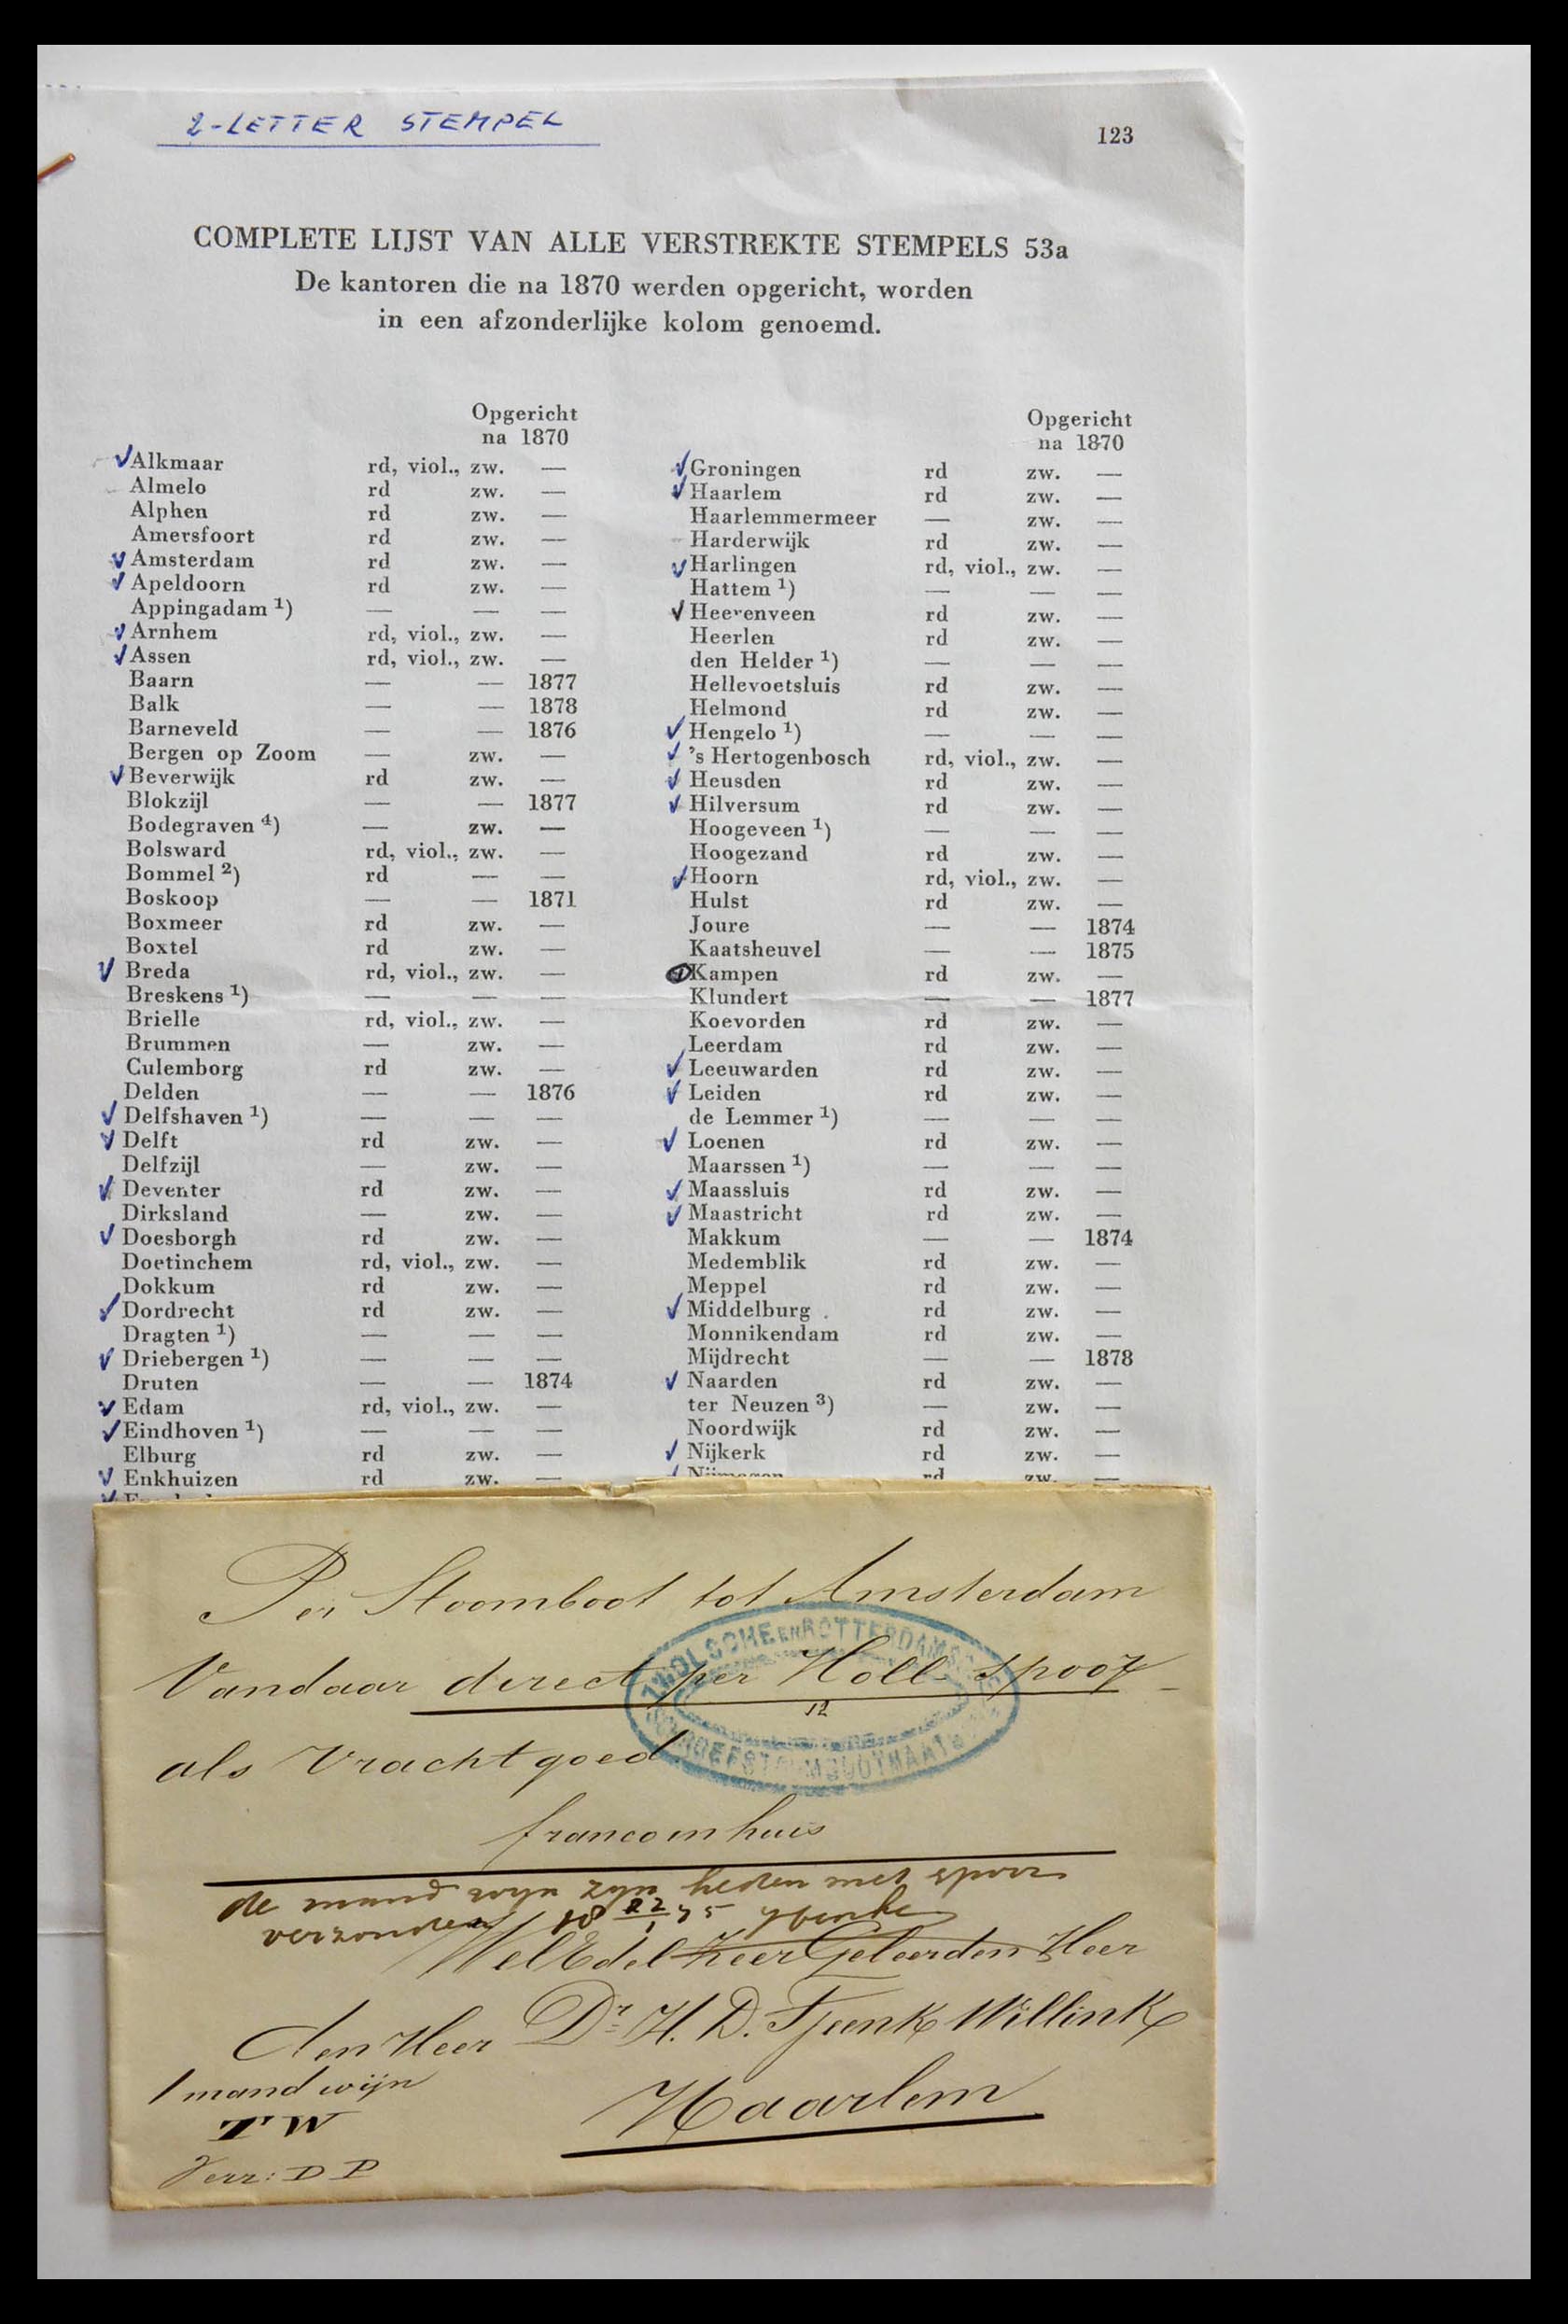 2-LETTER STEMPEL
123
COMPLETE LIJST VAN ALLE VERSTREKTE STEMPELS 53a
De kantoren die na 1870 werden opgericht, worden
in een afzonderlijke kolom genoemd.
Opgericht
na 1870
Alkmaar rd, viol., zw. —
Almelo rd zw. —
Alphen rd zw. —
Amersfoort rd zw. —
Amsterdam rd zw. —
Apeldoorn rd zw. —
Appingadam ¹) — — —
Arnhem rd, viol., zw. —
Assen rd, viol., zw. —
Baarn — — 1877
Balk — — 1878
Barneveld — — 1876
Bergen op Zoom — zw. —
Beverwijk rd zw. —
Blokzijl — — 1877
Bodegraven ⁴) — zw. —
Bolsward rd, viol., zw. —
Bommel ²) rd — —
Boskoop — — 1871
Boxmeer rd zw. —
Boxtel rd zw. —
Breda rd, viol., zw. —
Breskens ¹) — — —
Brielle rd, viol., zw. —
Brummen — zw. —
Culemborg rd zw. —
Delden — — 1876
Delfshaven ¹) — — —
Delft rd zw. —
Delfzijl — zw. —
Deventer rd zw. —
Dirksland — zw. —
Doesborgh rd zw. —
Doetinchem rd, viol., zw. —
Dokkum rd zw. —
Dordrecht rd zw. —
Dragten ¹) — — —
Driebergen ¹) — — —
Druten — — 1874
Edam rd, viol., zw. —
Eindhoven ¹) — — —
Elburg rd zw. —
Enkhuizen rd zw. —
Opgericht
na 1870
Groningen rd zw. —
Haarlem rd zw. —
Haarlemmermeer — zw. —
Harderwijk rd zw. —
Harlingen rd, viol., zw. —
Hattem ¹) — — —
Heerenveen rd zw. —
Heerlen rd zw. —
den Helder ¹) — — —
Hellevoetsluis rd zw. —
Helmond rd zw. —
Hengelo ¹) — — —
's Hertogenbosch rd, viol., zw. —
Heusden rd zw. —
Hilversum rd zw. —
Hoogeveen ¹) — — —
Hoogezand rd zw. —
Hoorn rd, viol., zw. —
Hulst rd zw. —
Joure — — 1874
Kaatsheuvel — — 1875
Kampen rd zw. —
Klundert — — 1877
Koevorden rd zw. —
Leerdam rd zw. —
Leeuwarden rd zw. —
Leiden rd zw. —
de Lemmer ¹) — — —
Loenen rd zw. —
Maarssen ¹) — — —
Maassluis rd zw. —
Maastricht rd zw. —
Makkum — — 1874
Medemblik rd zw. —
Meppel rd zw. —
Middelburg rd zw. —
Monnikendam rd zw. —
Mijdrecht — — 1878
Naarden rd zw. —
ter Neuzen ³) — zw. —
Noordwijk rd zw. —
Nijkerk rd zw. —
Nijmegen rd zw. —
Per Stoomboot tot Amsterdam
Vandaar direct per Holl. spoor
12
als Vrachtgoed
franco in huis
ZWOLSCHE EN ROTTERDAMSCHE
de mand wyn zyn heden met spoor
verzonden
WelEdel Zeer Geleerden Heer
den Heer Dr H. D. Tjeenk Willink
1 mand wijn
TW
Haarlem
Verz: D P